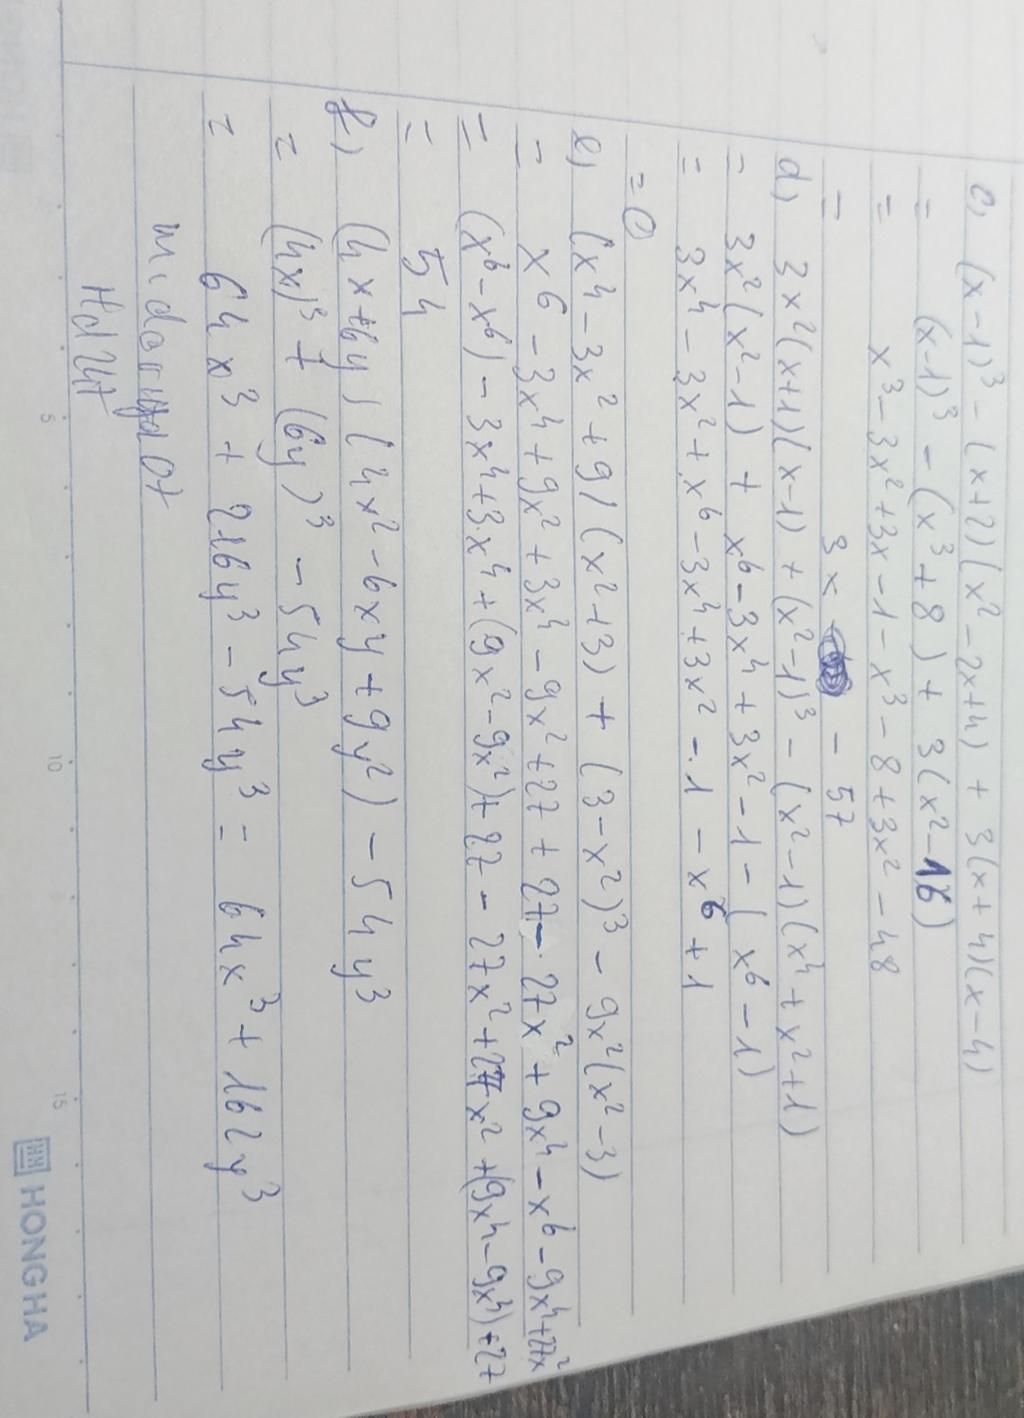 c, (x-1)³ - (x+2)(x²-2x+4) + 3(x+4)(x-4)
= (x-1)³ - (x³+8) + 3(x²-16)
= x³-3x²+3x-1-x³-8+3x²-48
= 3x - 57
d, 3x²(x+1)(x-1) + (x²-1)³ - (x²-1)(x⁴+x²+1)
= 3x²(x²-1) + x⁶-3x⁴+3x²-1-(x⁶-1)
= 3x⁴-3x²+x⁶-3x⁴+3x²-1-x⁶+1
= 0
e, (x⁴-3x²+9)(x²+3) + (3-x²)³ - 9x²(x²-3)
= x⁶-3x⁴+9x²+3x⁴-9x²+27+27-27x²+9x⁴-x⁶-9x⁴+27x²
= (x⁶-x⁶)-3x⁴+3x⁴+(9x²-9x²)+27-27x²+27x²+(9x⁴-9x⁴)+27
= 54
f, (4x+6y)(4x²-6xy+9y²)-54y³
= (4x)³+(6y)³-54y³
= 64x³+216y³-54y³= 64x³+162y³
5
10
15
HONGHA